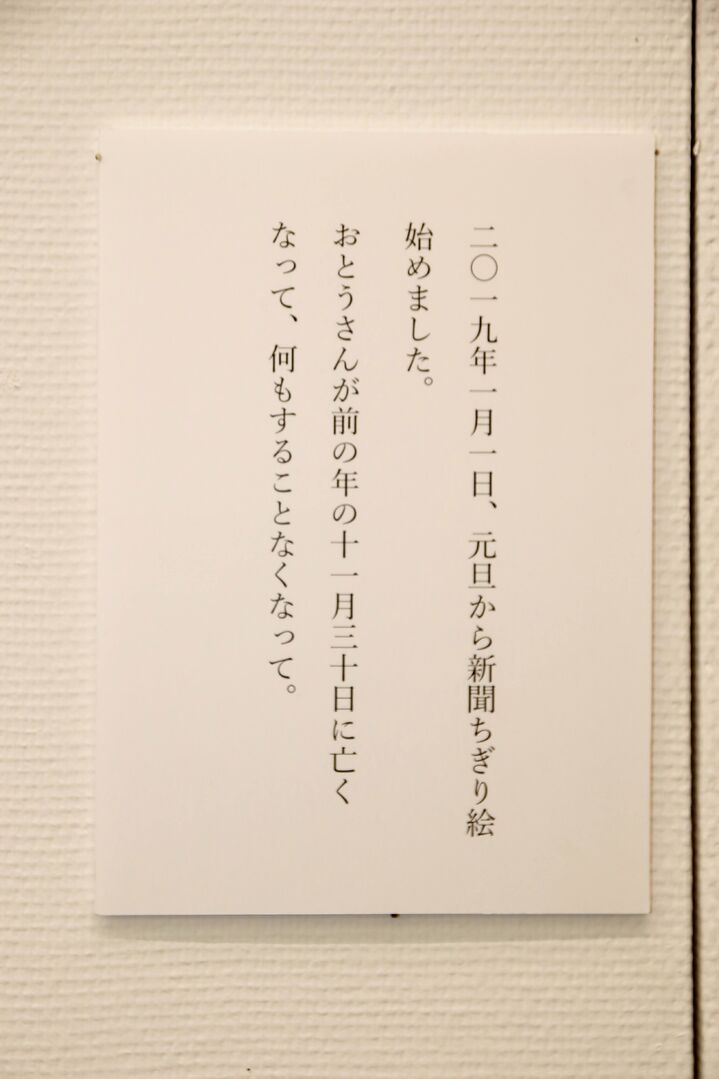 二〇一九年一月一日、元旦から新聞ちぎり絵
始めました。
おとうさんが前の年の十一月三十日に亡く
なって、何もすることなくなって。